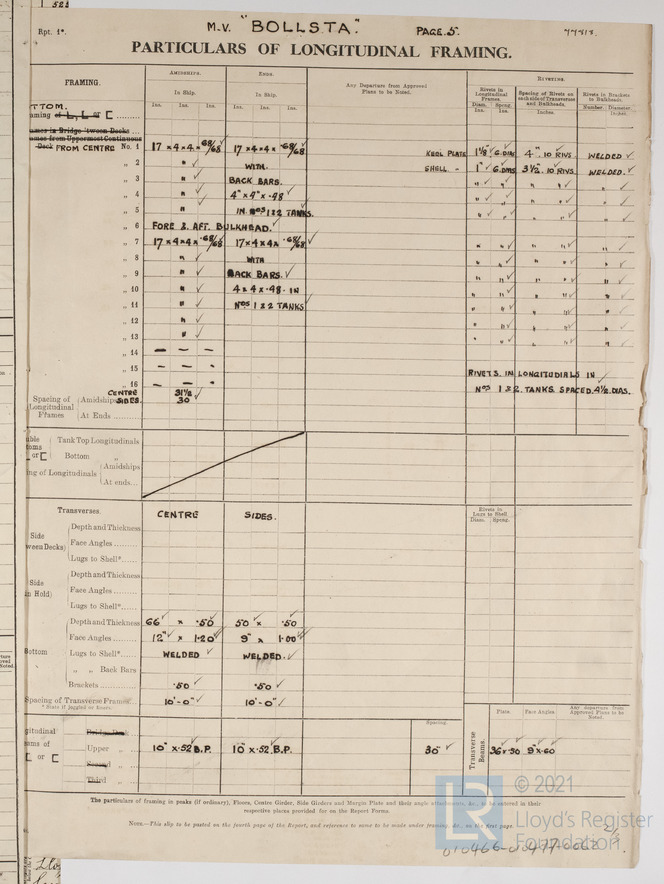 523
Rpt. 1*.
M.V. "BOLLSTA". PAGE.5.
PARTICULARS OF LONGITUDINAL FRAMING.
FRAMING.
AMIDSHIPS.
ENDS.
Any Departure from Approved Plans to be Noted.
RIVETING.
In Ship.
In Ship.
Rivets in Longitudinal Frames.
Spacing of Rivets on each side of Transverses and Bulkheads.
Rivets in Brackets to Bulkheads.
Ins. Ins. Ins. Ins. Ins. Ins.
Diam. Ins. Spcng. Ins.
Inches.
Number. Diameter. Inches.
TTOM.
aming of L, L or [
ames in Bridge 'tween Decks
ames from Uppermost Continuous
Deck FROM CENTRE No. 1 17 × 4 × 4 × ·68/68 17 × 4 × 4 × ·68/68 KEEL PLATE 1 1/8 6.DIAS 4". 10 RIVS. WELDED
„ 2 " WITH. SHELL. " 1" 6.DIAS 3 1/2. 10 RIVS. WELDED.
„ 3 " BACK BARS. " " " " "
„ 4 " 4" × 4" × ·48 " " " " "
„ 5 " IN Nos 1 & 2 TANKS. " " " " "
„ 6 FORE & AFT. BULKHEAD.
„ 7 17 × 4 × 4 × ·68/68 17 × 4 × 4 × ·68/68 " " " " "
„ 8 " WITH " " " " "
„ 9 " BACK BARS. " " " " "
„ 10 " 4 × 4 × ·48. IN " " " " "
„ 11 " Nos 1 & 2 TANKS " " " " "
„ 12 " " " " " "
„ 13 " " " " " "
„ 14 — — —
„ 15 — — " RIVETS. IN LONGITUDIALS IN
„ 16 — — " Nos 1 & 2. TANKS SPACED. 4 1/2. DIAS.
Spacing of Longitudinal Frames
Amidships CENTRE 31 1/2
SIDES. 30
At Ends
Tank Top Longitudinals
or [ Bottom „
ng of Longitudinals
Amidships
At ends...
Transverses. CENTRE SIDES.
Rivets in Lugs to Shell
Diam. Spcng.
Side
ween Decks)
Depth and Thickness
Face Angles
Lugs to Shell*
Side
in Hold)
Depth and Thickness
Face Angles
Lugs to Shell*
Bottom
Depth and Thickness 66 × ·50 50 × ·50
Face Angles 12" × 1·20" 9" × 1·00"
Lugs to Shell* WELDED WELDED.
„ „ Back Bars
Brackets ·50 ·50
Spacing of Transverse Frames 10'-0" 10'-0"
* State if joggled or liners.
Spacing.
Transverse Beams.
Plate. Face Angles. Any departure from Approved Plans to be Noted.
gitudinal
ams of
L or [
Bridge Deck
Upper „ 10" × ·52 B.P. 10" × ·52 B.P. 30" 36 × ·50 9" × ·60
Second „
Third „
The particulars of framing in peaks (if ordinary), Floors, Centre Girder, Side Girders and Margin Plate and their angle attachments, &c., to be entered in their
respective places provided for on the Report Forms.
NOTE.—This slip to be posted on the fourth page of the Report, and reference to same to be made under framing, &c., on the first page.
LR
© 2021
Lloyd's Register
Foundation
010466-010477-0062